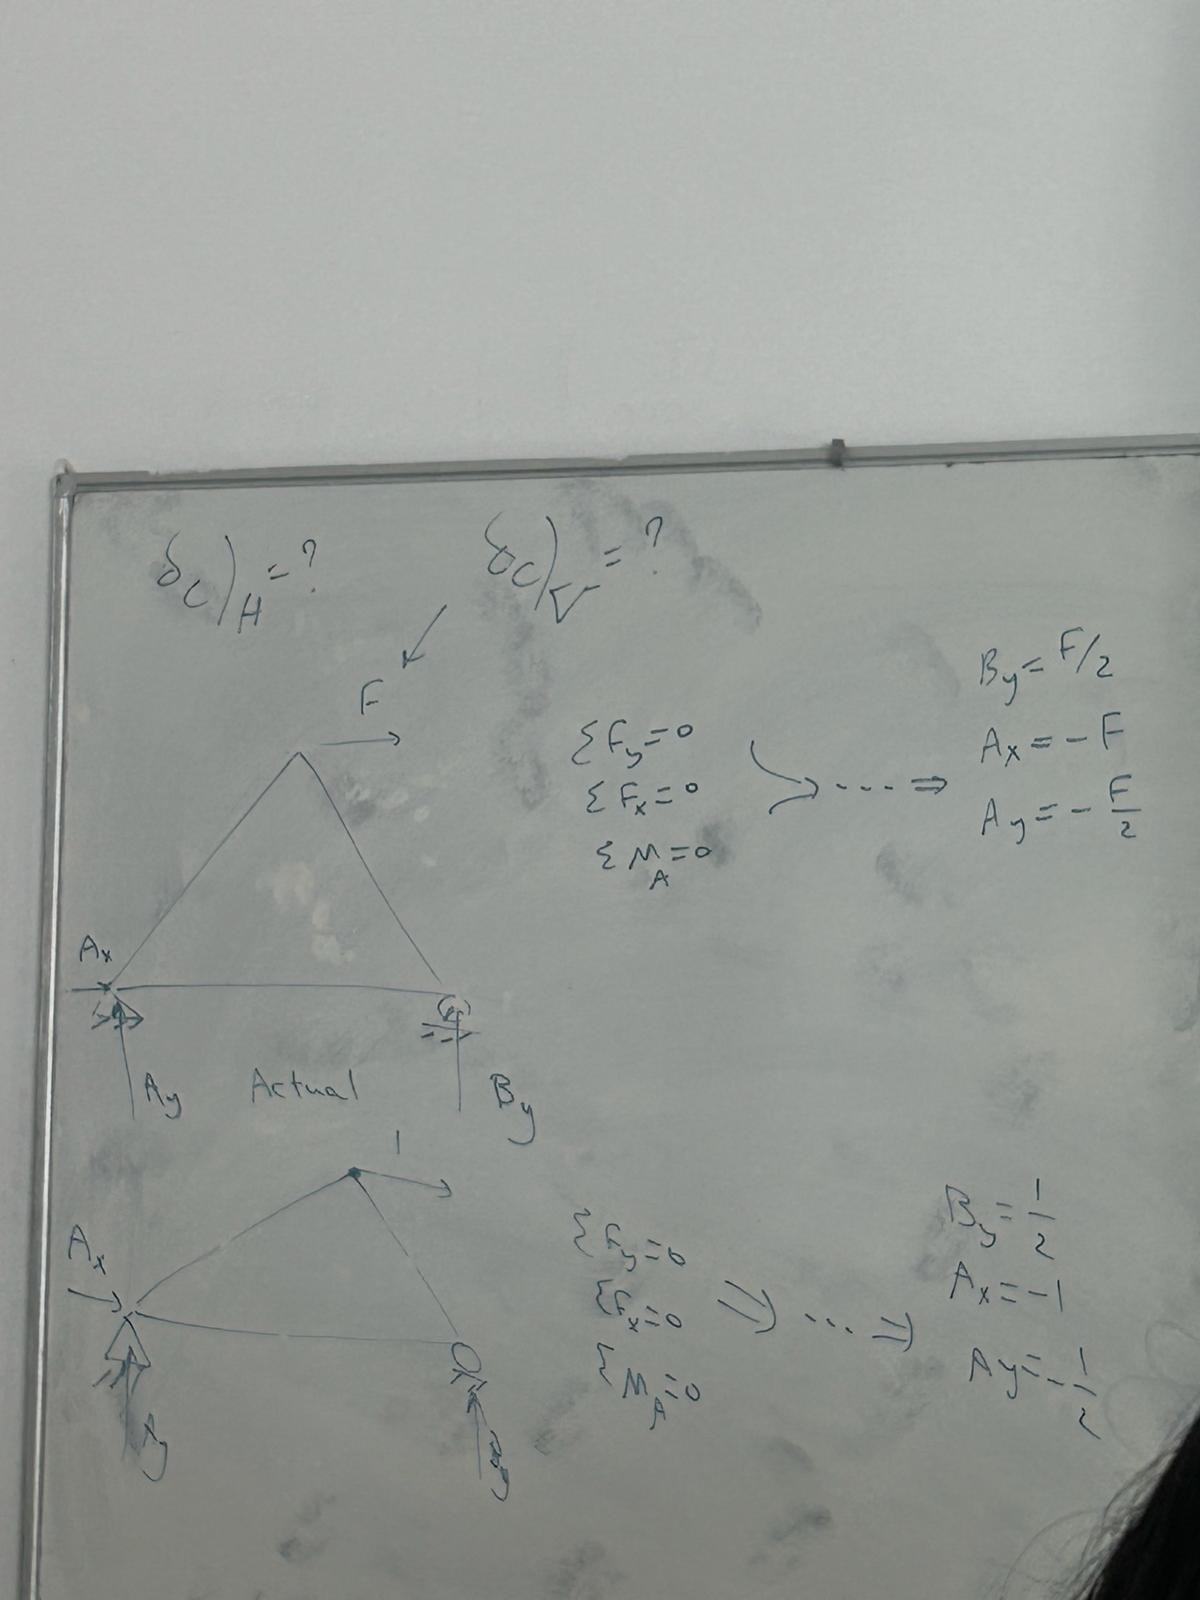 δc)H = ?
δc)V = ?
F
ΣFy=0
ΣFx=0
ΣMA=0
... ⇒
By = F/2
Ax = - F
Ay = - F/2
Ax
Ay
Actual
By
1
Ax
Ay
ΣFy=0
ΣFx=0
ΣMA=0
⇒ ... ⇒
By = 1/2
Ax = -1
Ay = - 1/2